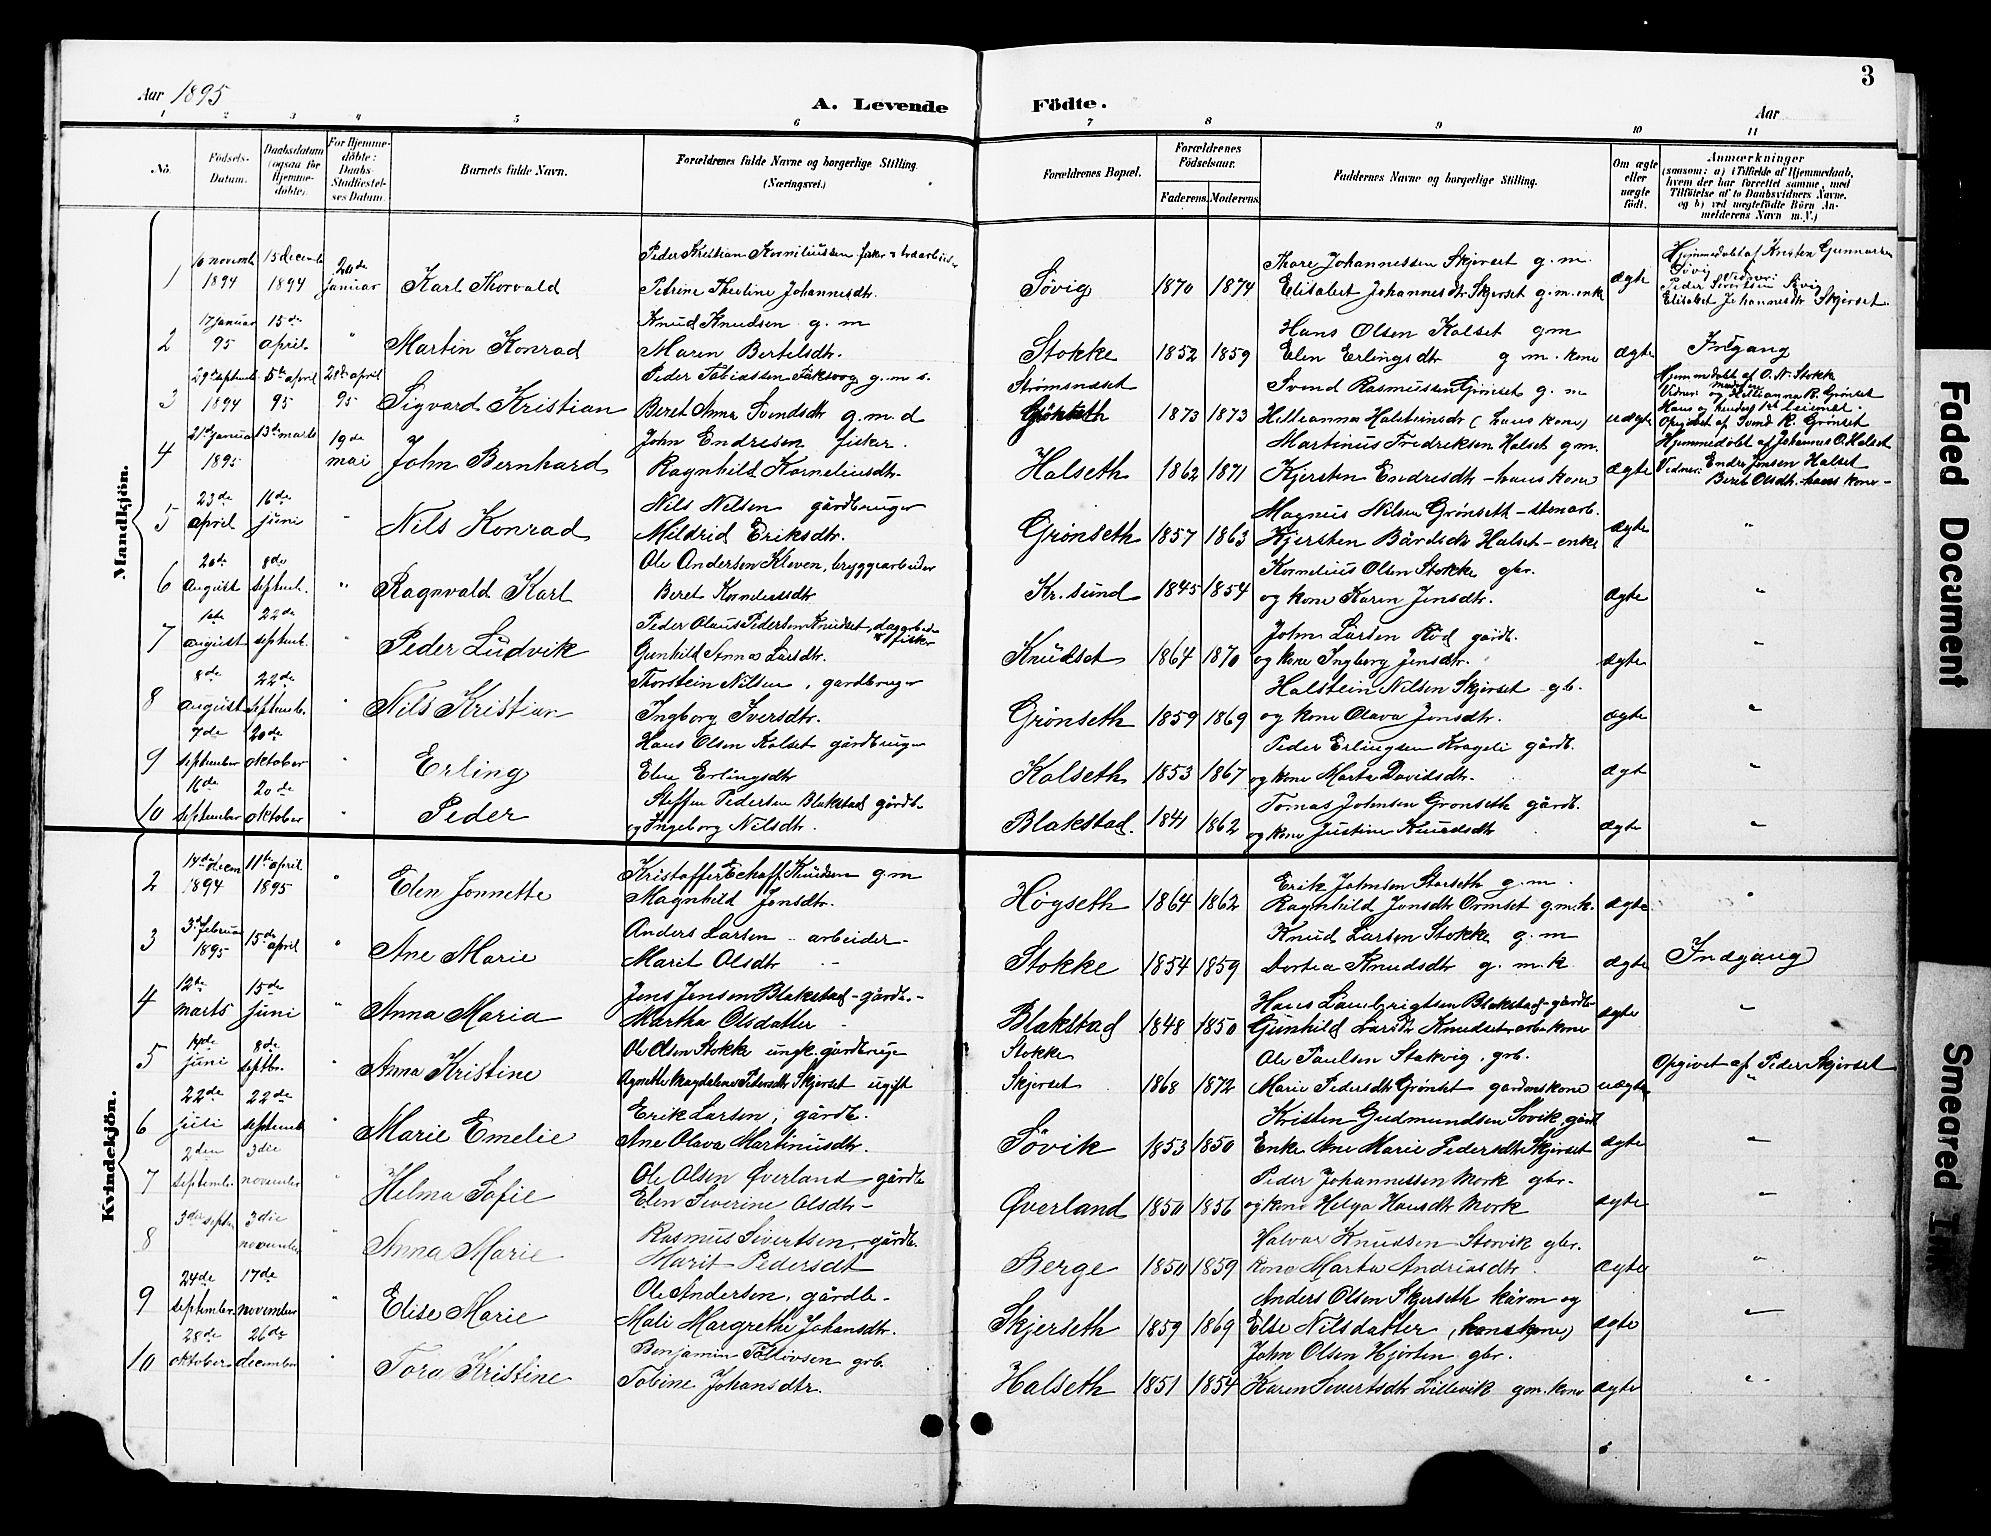 3
Aar 1895
A. Levende Födte.
Aar
1 2 3 4 5 6 7 8 9 10 11
No.
Födsels-Datum.
Daabsdatum (ogsaa for Hjemme-döbte).
For Hjemme-döbte: Daabs-Stadfæstel-ses Datum.
Barnets fulde Navn.
Forældrenes fulde Navne og borgerlige Stilling. (Næringsvei.)
Forældrenes Bopæl.
Forældrenes Födselsaar.
Faderens. Moderens.
Faddernes Navne og borgerlige Stilling.
Om ægte eller uægte födt.
Anmærkninger (saasom: a) i Tilfælde af Hjemmedaab, hvem der har forrettet samme, med Tilföielse af to Daabsvidners Navne, og b) ved uægtefödte Börn An-melderens Navn m. V.)
Mandkjön.
1 16 novemb. 1894 15 decemb. 1894 20de januar Karl Thorvald Peder Kristian Korneliussen fisker
Petrine Theoline Johannesdtr. Søvig 1870 1874 Thore Johannessen Skjerset g. m.
Elisabet Johannesdtr Skjerset g. m. enke ægte Hjemmedøbt af Kristen Gunnarsen Søvig Vidner: Peder Sivertsen Søvig Elisabet Johannesdtr Skjerset.
2 17 januar 95 15de april. " Martin Konrad Knud Knudsen g. m
Maren Bertelsdtr. Stokke 1852 1859 Hans Olsen Kalset gm
Elen Erlingsdtr g m. kone ægte Indgang
3 29de septemb 1894 15de april 95 28de april 95 Sigvard Kristian Peder Tobiassen Faksvog g. m s.
Beret Anna Svendsdtr g. m. d Strømsnæset
Grønseth 1873 1873 Svend Rasmussen Grønset g. m
Hilleanna Halsteinsdtr (hans kone) uægte Hjemmedøbt af O. N. Stokke
Vidner: og Hillianna R. Grønset
Hans og hendes 1ste leiermaal.
Opgivet af Svend R. Grønset
4 21de januar 1895 13de marts 19de mai John Bernhard John Endresen fisker.
Ragnhild Korneliusdtr. Halseth 1862 1871 Martinus Fredriksen Halset g m.
Kjersten Endresdtr - hans kone ægte Hjemmedøbt af Johannes O. Halset
Vidner: Endre Jonsen Halset
Beret Olsdtr. hans kone -
5 23de april 16de juni " Nils Konrad Nils Nilsen gårdbruger
Mildrid Eriksdtr. Grønseth 1857 1863 Magnus Nilsen Grønseth - stenarb.
Kjersten Bårdsdtr Halset - enke ægte "
6 20de august 8de septemb. " Ragnvald Karl Ole Andersen Kleven, bryggearbeider
Beret Kornelesdtr Kr. sund 1845 1854 Kornelius Olsen Stokke gbr.
og kone Karen Jensdtr. ægte "
7 1ste august 22de septemb. " Peder Ludvik Peder Olaus Pedersen Knudset, dagarbeider
og fisker
Gunhild Anna Larsdtr. Knudset 1864 1870 John Larsen Rød gårdb.
og kone Ingborg Jensdtr. ægte "
8 8de august 22de septemb. " Nils Kristian Thorstein Nilsen, gardbruger
Ingborg Iversdtr. Grønseth 1859 1869 Halstein Nilsen Skjerset gb.
og kone Olava Jonsdtr. ægte "
9 7de september 20de oktober " Erling Hans Olsen Kalset gårdbruger
Elen Erlingsdtr Kalseth 1853 1867 Peder Erlingsen Krageli gårdb.
og kone Marta Davidsdtr. ægt "
10 16de september 20de oktober " Peder Steffen Pedersen Blakstad gårdb.
og Ingeborg Nilsdtr. Blakstad. 1841 1862 Tomas Johnsen Grønseth gårdb.
og kone Justine Knudsdtr ægte "
Kvindekjön.
2 14de decem 1894 11te april 1895 " Elen Jonnette Kristoffer Echoff Knudsen g m
Magnhild Jonsdtr. Høgseth 1864 1862 Erik Johnsen Storseth g. m.
Ragnhild Jonsdtr Ormset g. m. k. ægte "
3 3de februar 1895 15de april " Ane Marie Anders Larsen - arbeider -
Marit Olsdtr Stokke 1854 1859 Knud Larsen Stokke g. m
Dortea Knudsdtr g. m. k ægte Indgang
4 12de marts 15de juni " Anna Maria Jens Jensen Blakstad - gårdb. -
Martha Olsdatter Blakstad 1848 1850 Hans Lambrigtsen Blakstad - gårdb-
Gunhild Larsdtr Knudset - arb. kone ægte "
5 juni 8de septbr. " Anna Kristine Ole Olsen Stokke ungk. gårdbruger
Agnette Magdalene Pedersdtr Skjerset ugift Stokke
Skjerset 1868 1872 Ole Paulsen Stakvig, grb.
Marie Pedersdtr Grønset gardmskone uægte Opgivet af Peder Skjerset
6 22de juli 22de septemb " Marie Emelie Erik Larsen, gårdb.
Ane Olava Martinusdtr. Søvik 1853 1850 Kristen Gudmundsen Søvik, gårdb
Enke Ane Marie Pedersdtr Skjerset ægte "
7 2den september 3die november " Helma Sofie Ole Olsen Øverland gårdb
Elen Severine Olsdtr - Øverland 1850 1856 Peder Johannessen Mork gbr.
og kone Helga Hansdtr Mork ægte "
8 3die septb. 3die november " Anna Marie Rasmus Sivertsen, gårdb.
Marit Pedersdt Berge 1850 1859 Halvar Knudsen Storvik gbr.
kone Marta Andreasdtr. ægte "
9 24de september 17de november " Elise Marie Ole Andersen, gårdb-
Mali Margrethe Johansdtr. Skjerseth 1859 1869 Anders Olsen Skjerseth kårm og
Else Nilsdatter (hans kone) ægte "
10 28de oktober 26de december " Tora Kristine Benjamin Tostivsen grb.
Tobine Johansdtr. Halseth 1851 1854 John Olsen Hjorten gbr.
Karen Sivertsdtr Lillevik gm. kone ægte "
Faded Document
Smeared Ink